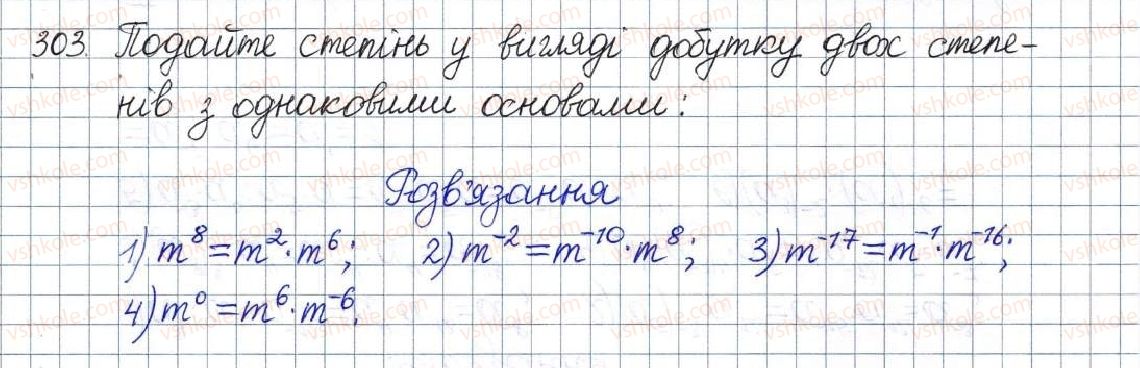 303. Подайте степінь у вигляді добутку двох степе-
нів з однаковими основами:
Розв'язання
1) m⁸ = m² · m⁶; 2) m⁻² = m⁻¹⁰ · m⁸; 3) m⁻¹⁷ = m⁻¹ · m⁻¹⁶;
4) m⁰ = m⁶ · m⁻⁶.